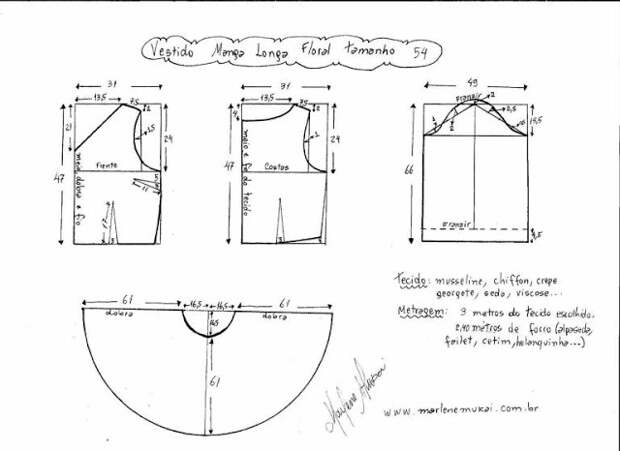 Vestido Manga Longa Floral tamanho 54
31
13,5
7,5
2
1,5
21
24
47
Frente
11
meio dobra e fio
17
3
31
13,5
7,5
2
4
2
24
47
Costas
meio e fio do tecido
3
49
Franzir
2
2,5
2
15,5
66
Franzir
4,5
61
16,5
16,5
61
dobra
dobra
16,5
61
Tecido: musseline, chiffon, crepe
georgete, seda, viscose...
Metragem: 3 metros do tecido escolhido.
2,40 metros de forro (alpaseda,
failet, cetim, helanquinha...)
Marlene Mukai
www.marlenemukai.com.br